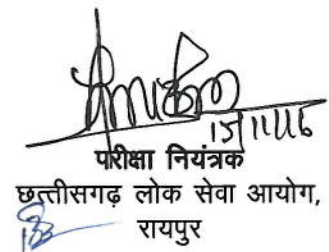 15/11/16
परीक्षा नियंत्रक
छत्तीसगढ़ लोक सेवा आयोग,
रायपुर